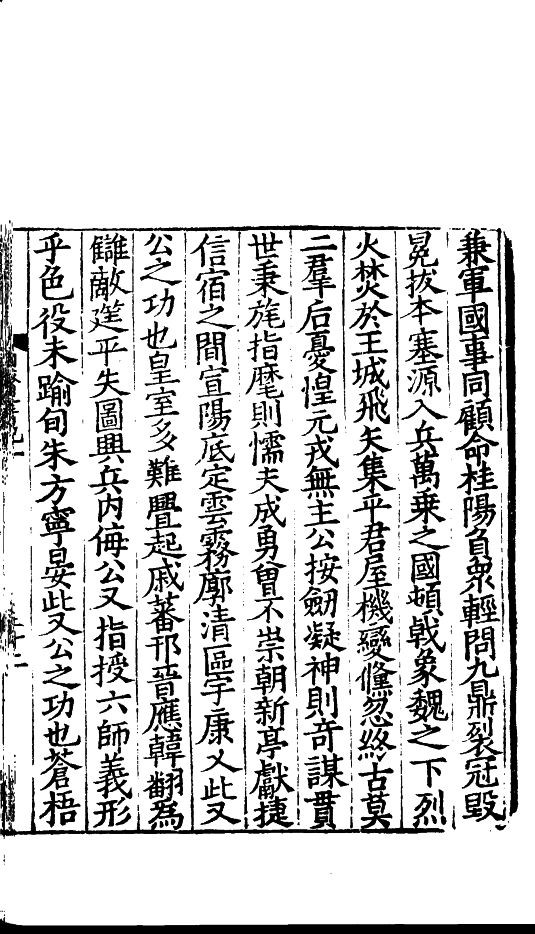 兼軍國事同顧命桂陽負衆輕問九鼎裂冠毀
冕拔本塞源入兵萬乗之國頓戟象魏之下烈
火焚於王城飛矢集乎君屋機變儵忽終古莫
二羣后憂惶元戎無主公按劒凝神則竒謀貫
世秉旄指麾則懦夫成勇曾不崇朝新亭獻捷
信宿之間宣陽底定雲霧廓清區宇康乂此又
公之功也皇室多難釁起戚蕃邗晉應韓翻為
讎敵建平失圖興兵内侮公又指授六師義形
乎色役未踰旬朱方寧晏此又公之功也蒼梧